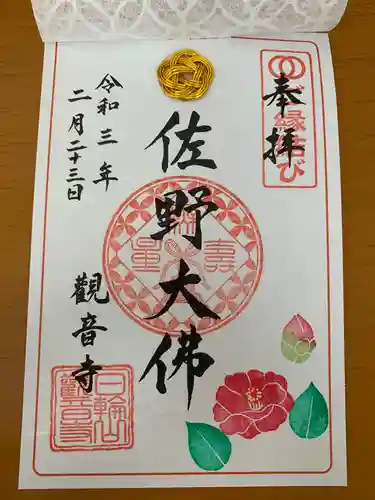 奉拝
縁結び
佐野大佛
無量壽
令和三年
二月二十三日
觀音寺
日輪山
觀音寺